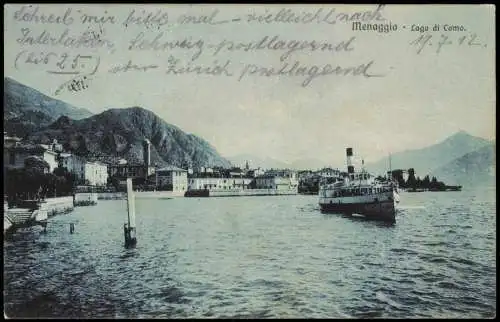 Schreib mir bitte mal - vielleicht nach
Interlaken, Schweiz - postlagernd
(bis 25.)
oder Zürich postlagernd
Menaggio - Lago di Como.
17.7.12.